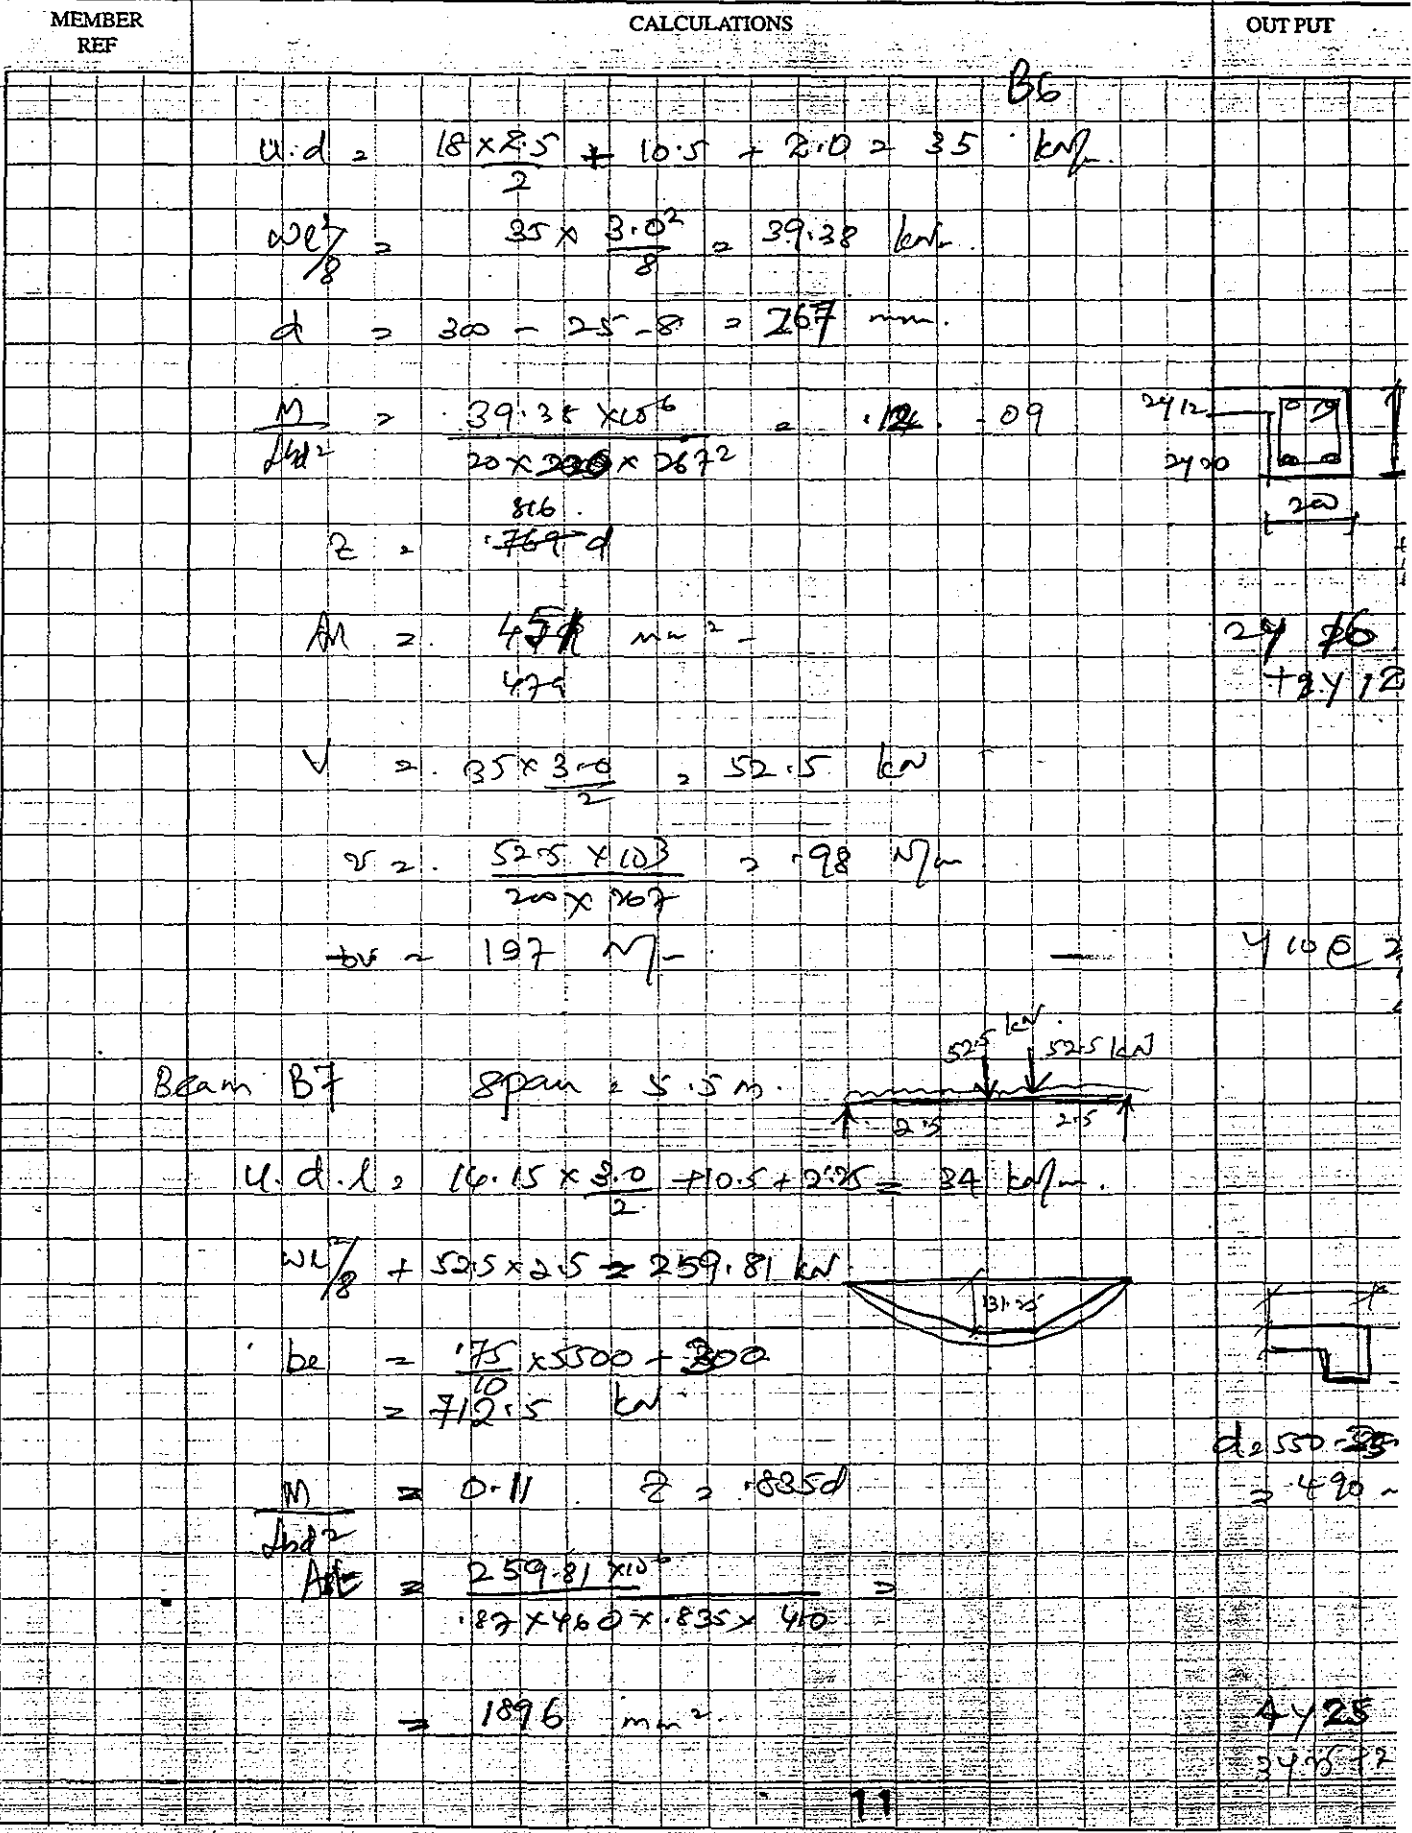 MEMBER REF CALCULATIONS OUT PUT
B6
u.d = 18 × 2.5 / 2 + 10.5 + 2.0 = 35 kN/m
wl²/8 = 35 × 3.0² / 8 = 39.38 kNm
d = 300 - 25 - 8 = 267 mm.
M / fbd² = 39.38 × 10⁶ / 20 × 200 × 267² = .09
2Y12
2Y20
200
816
Z = .769 d
As = 451 mm²
479
2Y 16
+2Y12
V = 35 × 3.0 / 2 = 52.5 kN
v = 52.5 × 10³ / 200 × 267 = .98 N/m
bv = 197 N/- — Y10@2
52.5 kN 52.5 kN
Beam B7 Span = 5.5 m.
2.5 2.5
u.d.l = 14.15 × 3.0 / 2 + 10.5 + 2.25 = 34 kN/m.
wl²/8 + 52.5 × 2.5 = 259.81 kN
131.25
be = .75 / 10 × 5500 + 300
= 712.5 kN
d = 550 -
= 490
M / fbd² = 0.11 Z = .835d
Ast = 259.81 × 10⁶ / .87 × 460 × .835 × 410 =
= 1896 mm²
4Y25
3Y25 +2
11